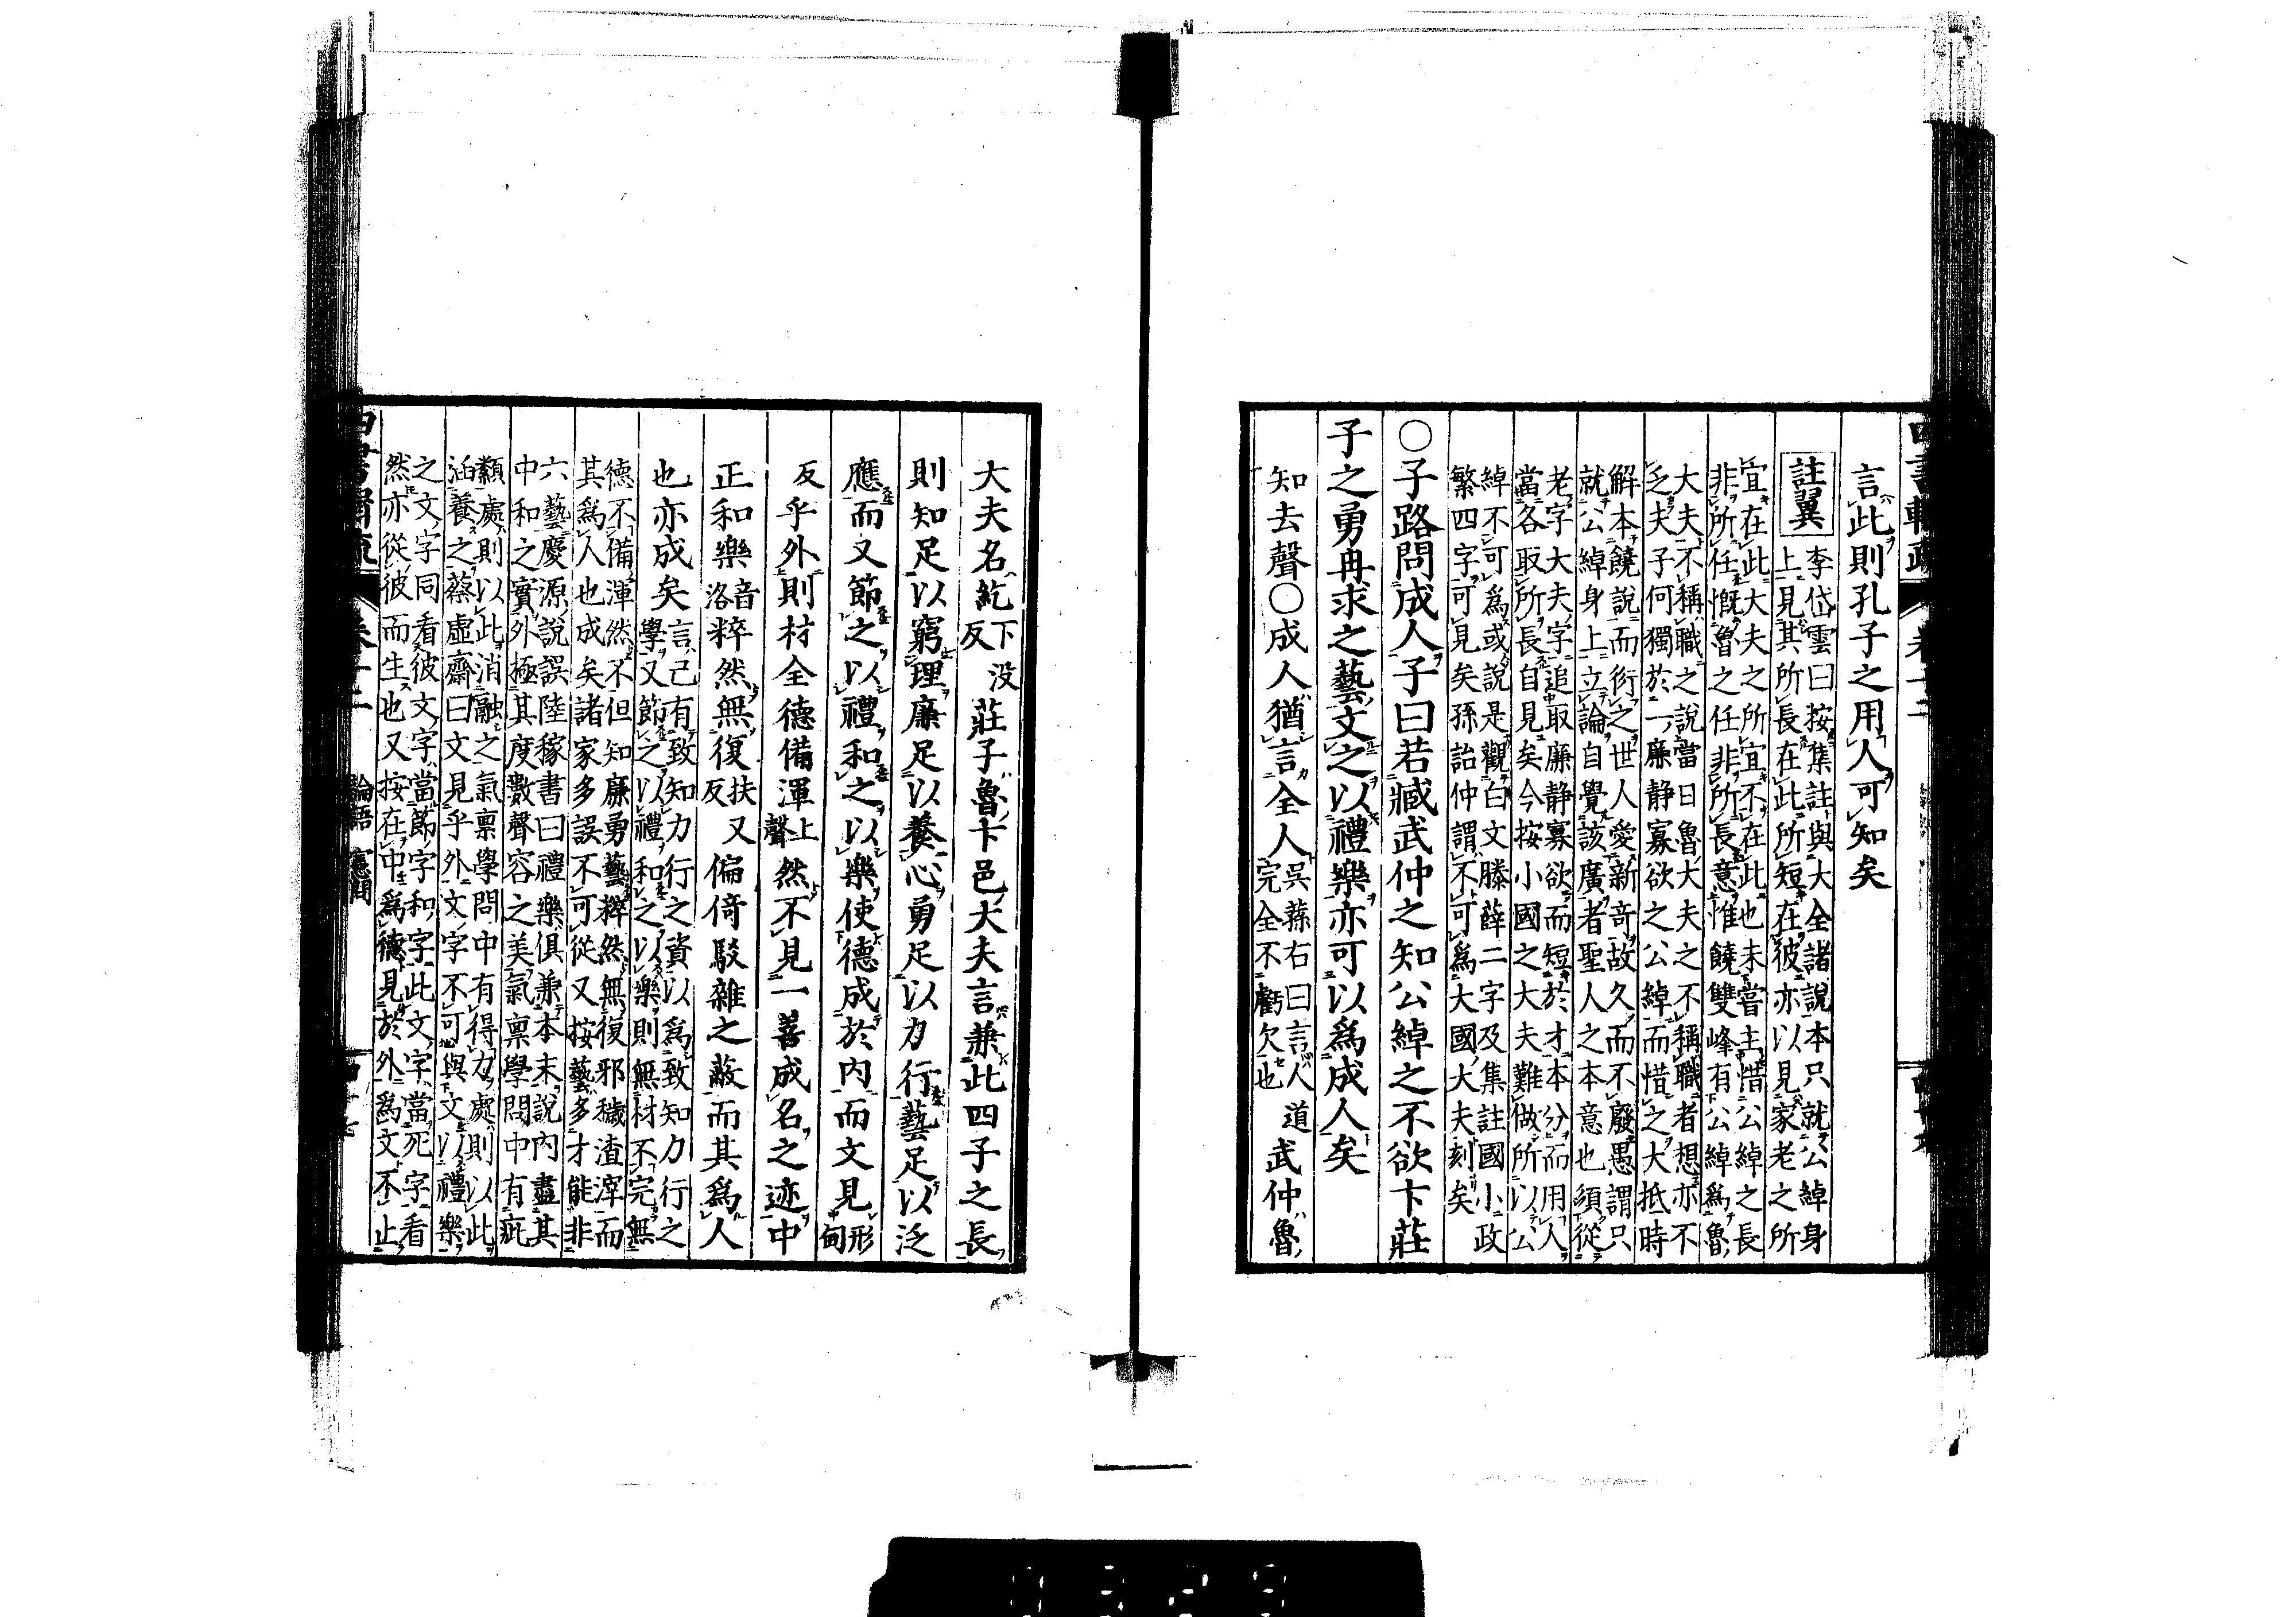 言此則孔子之用人可知矣
註翼
李岱雲曰按集註與大全諸說本只就公綽身
上見其所長在此所短在彼亦以見家老之所
宜在此大夫之所宜不在此也未嘗主惜公綽之長
非所任慨魯之任非所長意惟饒雙峰有公綽為魯
大夫不稱職之說當日魯大夫之不稱職者想亦不
乏夫子何獨於一廉静寡欲之公綽而惜之大抵時
解本饒說而衍之世人愛新奇故久而不廢愚謂只
就公綽身上立論自覺該廣者聖人之本意也須從
老字大夫字追取廉静寡欲而短於才本分而用人
當各取所長自見矣今按小國之大夫難做所以公
綽不可為或說是觀白文滕薛二字及集註國小政
繁四字可見矣孫詒仲謂不可為大國大夫刻矣
○子路問成人子曰若臧武仲之知公綽之不欲卞莊
子之勇冉求之藝文之以禮樂亦可以為成人矣
知去聲○成人猶言全人
吳蓀右曰言人道
完全不虧欠也
武仲魯
大夫名紇
下没
反
莊子魯卞邑大夫言兼此四子之長
則知足以窮理廉足以養心勇足以力行藝足以泛
應而又節之以禮和之以樂使德成於内而文見
形
甸
反乎外則材全德備渾
上
聲
然不見一善成名之迹中
正和樂
音
洛
粹然無復
扶又
反
偏倚駁雜之蔽而其為人
也亦成矣
言己有致知力行之資以為致知力行之
學又節之以禮和之以樂則無材不完無
德不備渾然不但知廉勇藝粹然無復邪穢渣滓而
其為人也成矣諸家多誤不可從又按藝多才能非
六藝慶源說誤陸稼書曰禮樂俱兼本末說内盡其
中和之實外極其度數聲容之美氣禀學問中有疵
纇處則以此消融之氣禀學問中有得力處則以此
涵養之蔡虛齋曰文見乎外文字不可與文以禮樂
之文字同看彼文字當節字和字此文字當死字看
然亦從彼而生也又按在中為德見於外為文不止
論語 憲問